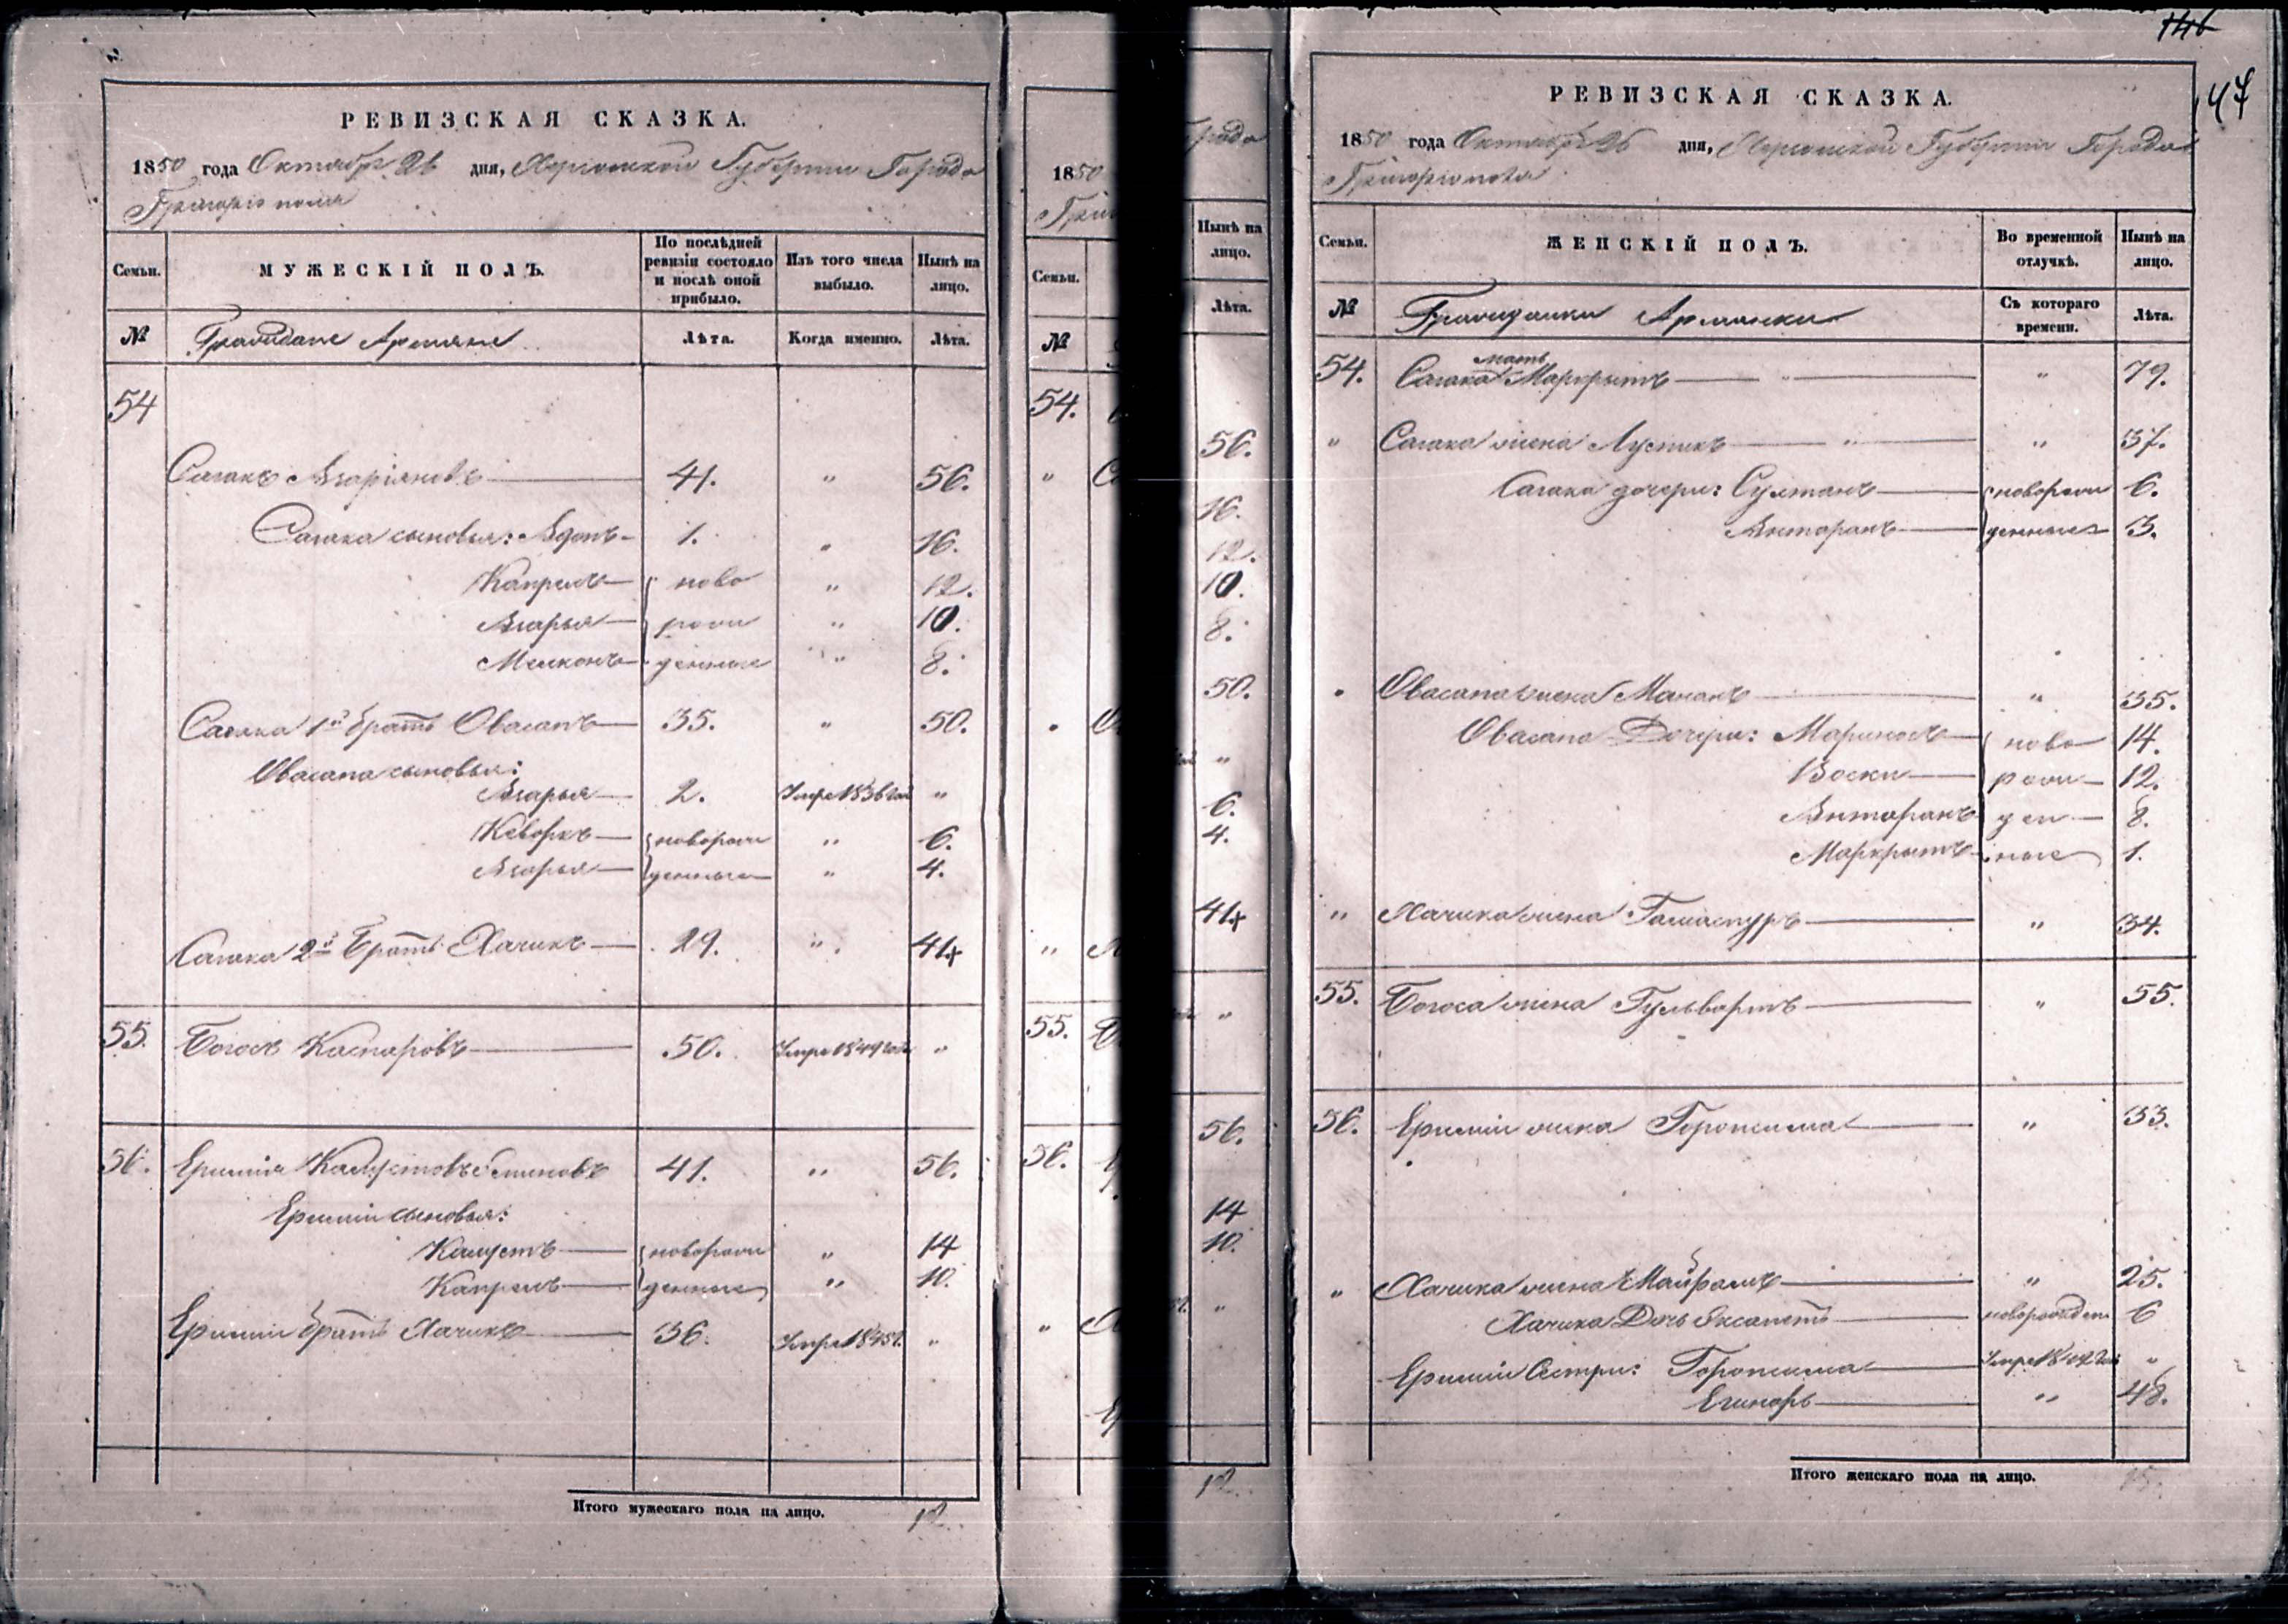 РЕВИЗСКАЯ СКАЗКА.
1850 года Октября 26 дня, Херсонской Губернии Города
Григориополя
Семьи.
МУЖЕСКІЙ ПОЛЪ.
По послѣдней ревизіи состояло и послѣ оной прибыло.
Изъ того числа выбыло.
Нынѣ на лицо.
№ Граждане Армяне Лѣта. Когда именно. Лѣта.
54
Сагакъ Азаріяновъ 41. " 56.
Сагака сыновья: 1. " 16.
Капрелъ ново " 12.
Азарья рож " 10.
Мелконъ денные " 8.
Сагака 1й братъ Овасапъ 35. " 50.
Овасапа сыновья:
Азарья 2. Умре 1836 года "
Кеворкъ новорож " 6.
Азарья денные " 4.
Сагака 2й Братъ Хачикъ 29. " 41
55. Богосъ Каспаровъ 50. Умре 1849 года "
56. Еремія Калустовъ 41. " 56.
Ереміи сыновья:
Калустъ новорож " 14
Капрелъ денные " 10.
Ереміи братъ Хачикъ 36. Умре 1845 г. "
Итого мужескаго пола на лицо. 12.
1850
Семьи.
№
54.
"
"
"
55.
56.
"
Нынѣ на лицо.
Лѣта.
56.
16.
12.
10.
8.
50.
"
6.
4.
41
"
56.
14
10.
"
12.
146
147
РЕВИЗСКАЯ СКАЗКА.
1850 года Октября 26 дня, Херсонской Губернии Города
Григориополя
Семьи.
ЖЕНСКІЙ ПОЛЪ.
Во временной отлучкѣ.
Нынѣ на лицо.
№ Гражданки Армянки Съ котораго времени. Лѣта.
54. Сагака мать Маркрытъ " 79.
" Сагака жена Лусикъ " 37.
Сагака дочери: Султанъ новорож 6.
Антаранъ денные 3.
" Овасапа жена Мананъ " 35.
Овасапа Дочери: Мариносъ ново 14.
Воски рож 12.
Антаранъ ден 8.
Маркрытъ ные 1.
" Хачика жена Гамаспуръ " 34.
55. Богоса жена Гульвартъ " 55.
56. Ереміи жена Горопсима " 33.
" Хачика жена Майрамъ " 25.
Хачика Дочь Эксапетъ новорожден 6
Ереміи Сестры: Горопсима Умре "
Егинаръ " 48.
Итого женскаго пола на лицо. 15.